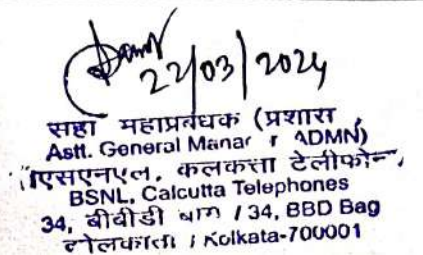 22/03/2024
सहा महाप्रबंधक (प्रशास
Astt. General Manar r ADMN)
एसएनएल, कलकत्ता टेलीफोन,
BSNL, Calcutta Telephones
34, बीबीडी बाग / 34, BBD Bag
/ Kolkata-700001